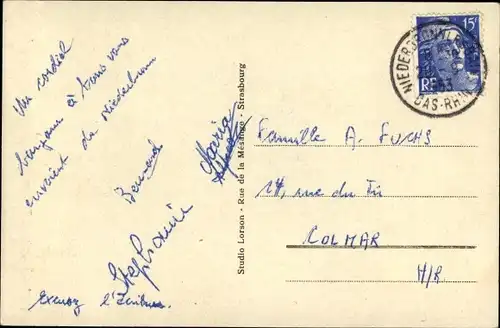 Un cordial
bonjour à tous vous
envoient de Niederbronn
Bernard
Maria
Stephanie
Studio Lorson - Rue de la Mésange - Strasbourg
15F
RF
NIEDERBRONN
BAS-RHIN
Famille A. FUCHS
14, rue du
COLMAR
H/R